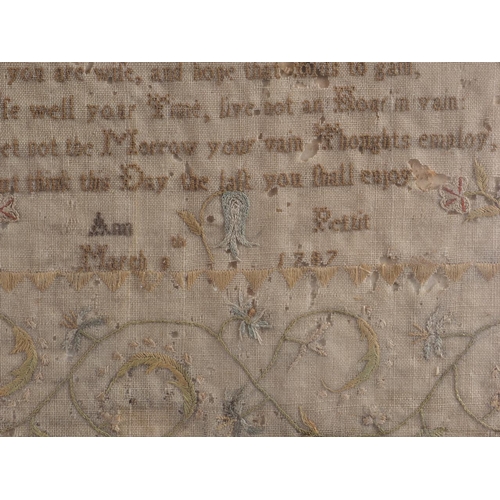 you are wise, and hope that to gain,
se well your Time, live not an Hour in vain:
et not the Morrow your vain Thoughts employ,
think this Day the last you shall enjoy
Ann Pettit
March th